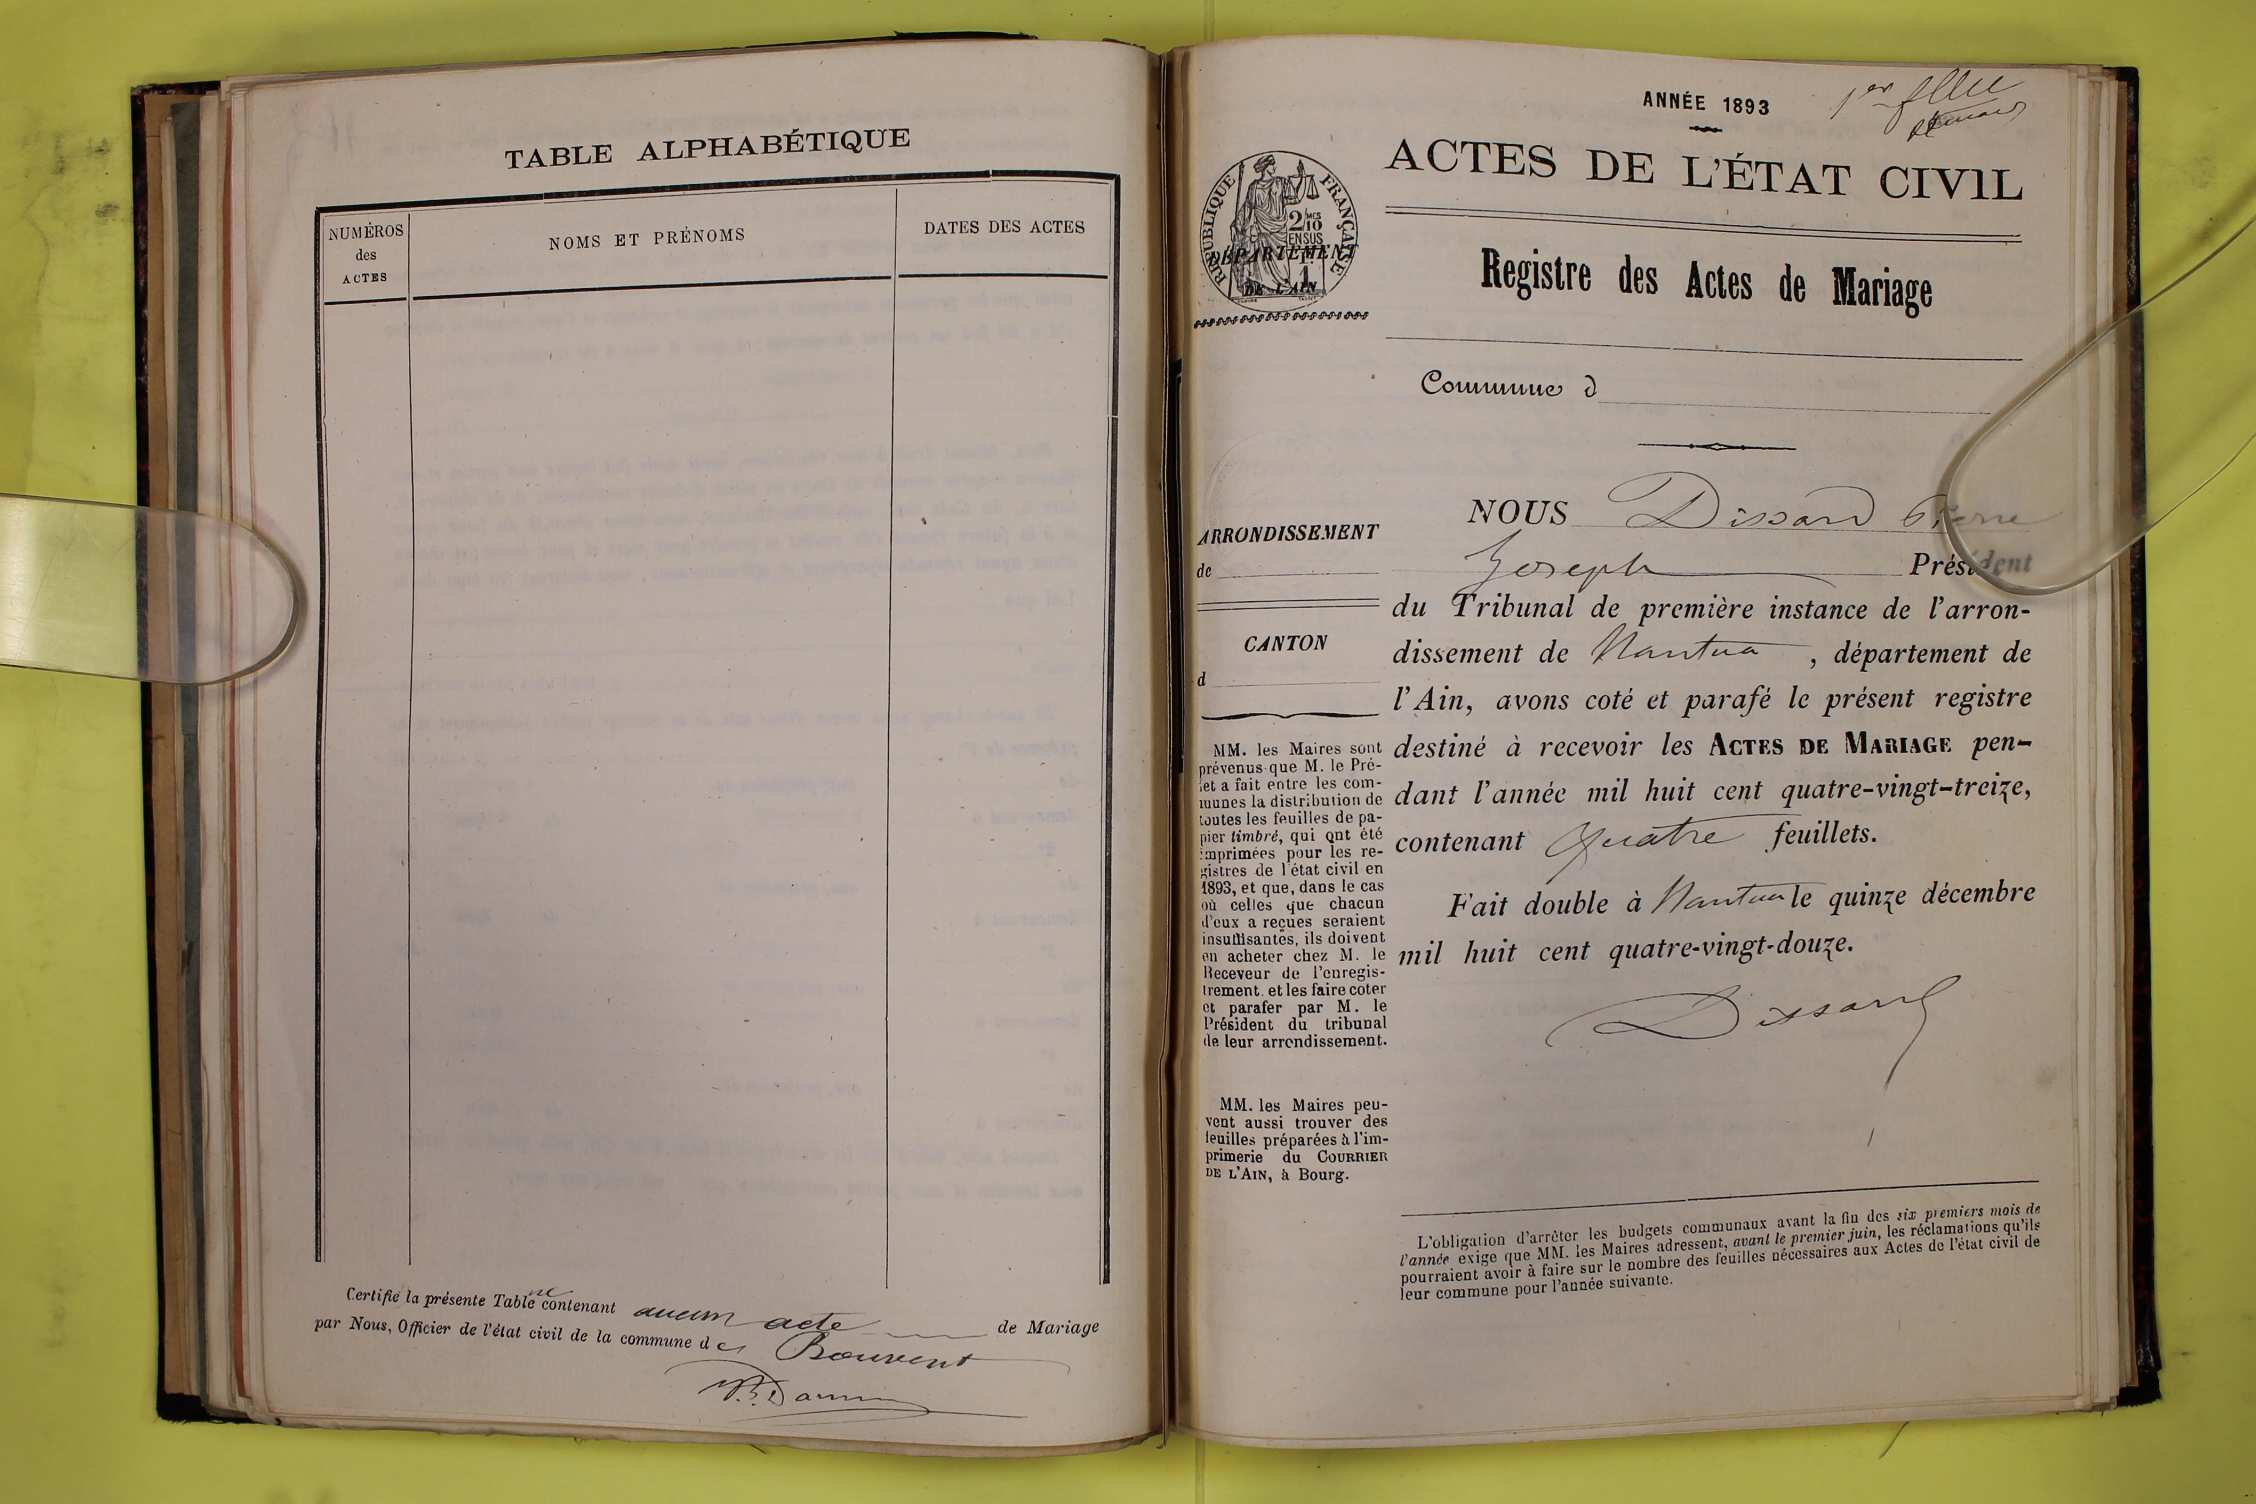 TABLE ALPHABÉTIQUE
NUMÉROS
des
ACTES
NOMS ET PRÉNOMS
DATES DES ACTES
Certifié la présente Table ne contenant aucun acte de Mariage
par Nous, Officier de l'état civil de la commune de Bouvent
ANNÉE 1893
1er
ACTES DE L'ÉTAT CIVIL
RÉPUBLIQUE FRANÇAISE
2/10 MES
EN SUS
DÉPARTEMENT
1
DE L'AIN
Registre des Actes de Mariage
Commune d
ARRONDISSEMENT
de
CANTON
d
MM. les Maires sont
prévenus que M. le Pré-
fet a fait entre les com-
munes la distribution de
toutes les feuilles de pa-
pier timbré, qui ont été
imprimées pour les re-
gistres de l'état civil en
1893, et que, dans le cas
où celles que chacun
d'eux a reçues seraient
insuffisantes, ils doivent
en acheter chez M. le
Receveur de l'enregis-
trement. et les faire coter
et parafer par M. le
Président du tribunal
de leur arrondissement.
MM. les Maires peu-
vent aussi trouver des
feuilles préparées à l'im-
primerie du COURRIER
DE L'AIN, à Bourg.
NOUS Dissard Pierre
Joseph Président
du Tribunal de première instance de l'arron-
dissement de Nantua, département de
l'Ain, avons coté et parafé le présent registre
destiné à recevoir les ACTES DE MARIAGE pen-
dant l'année mil huit cent quatre-vingt-treize,
contenant Quatre feuillets.
Fait double à Nantua le quinze décembre
mil huit cent quatre-vingt-douze.
Dissard
L'obligation d'arrêter les budgets communaux avant la fin des six premiers mois de
l'année exige que MM. les Maires adressent, avant le premier juin, les réclamations qu'ils
pourraient avoir à faire sur le nombre des feuilles nécessaires aux Actes de l'état civil de
leur commune pour l'année suivante.